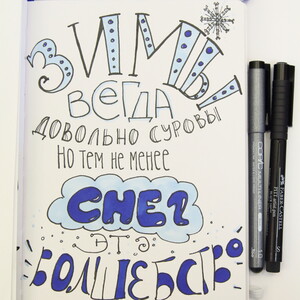 ЗИМЫ
ВСЕГДА
ДОВОЛЬНО СУРОВЫ
НО ТЕМ НЕ МЕНЕЕ
СНЕГ
ЭТО
ВОЛШЕБСТВО
COPIC
FABER-CASTELL